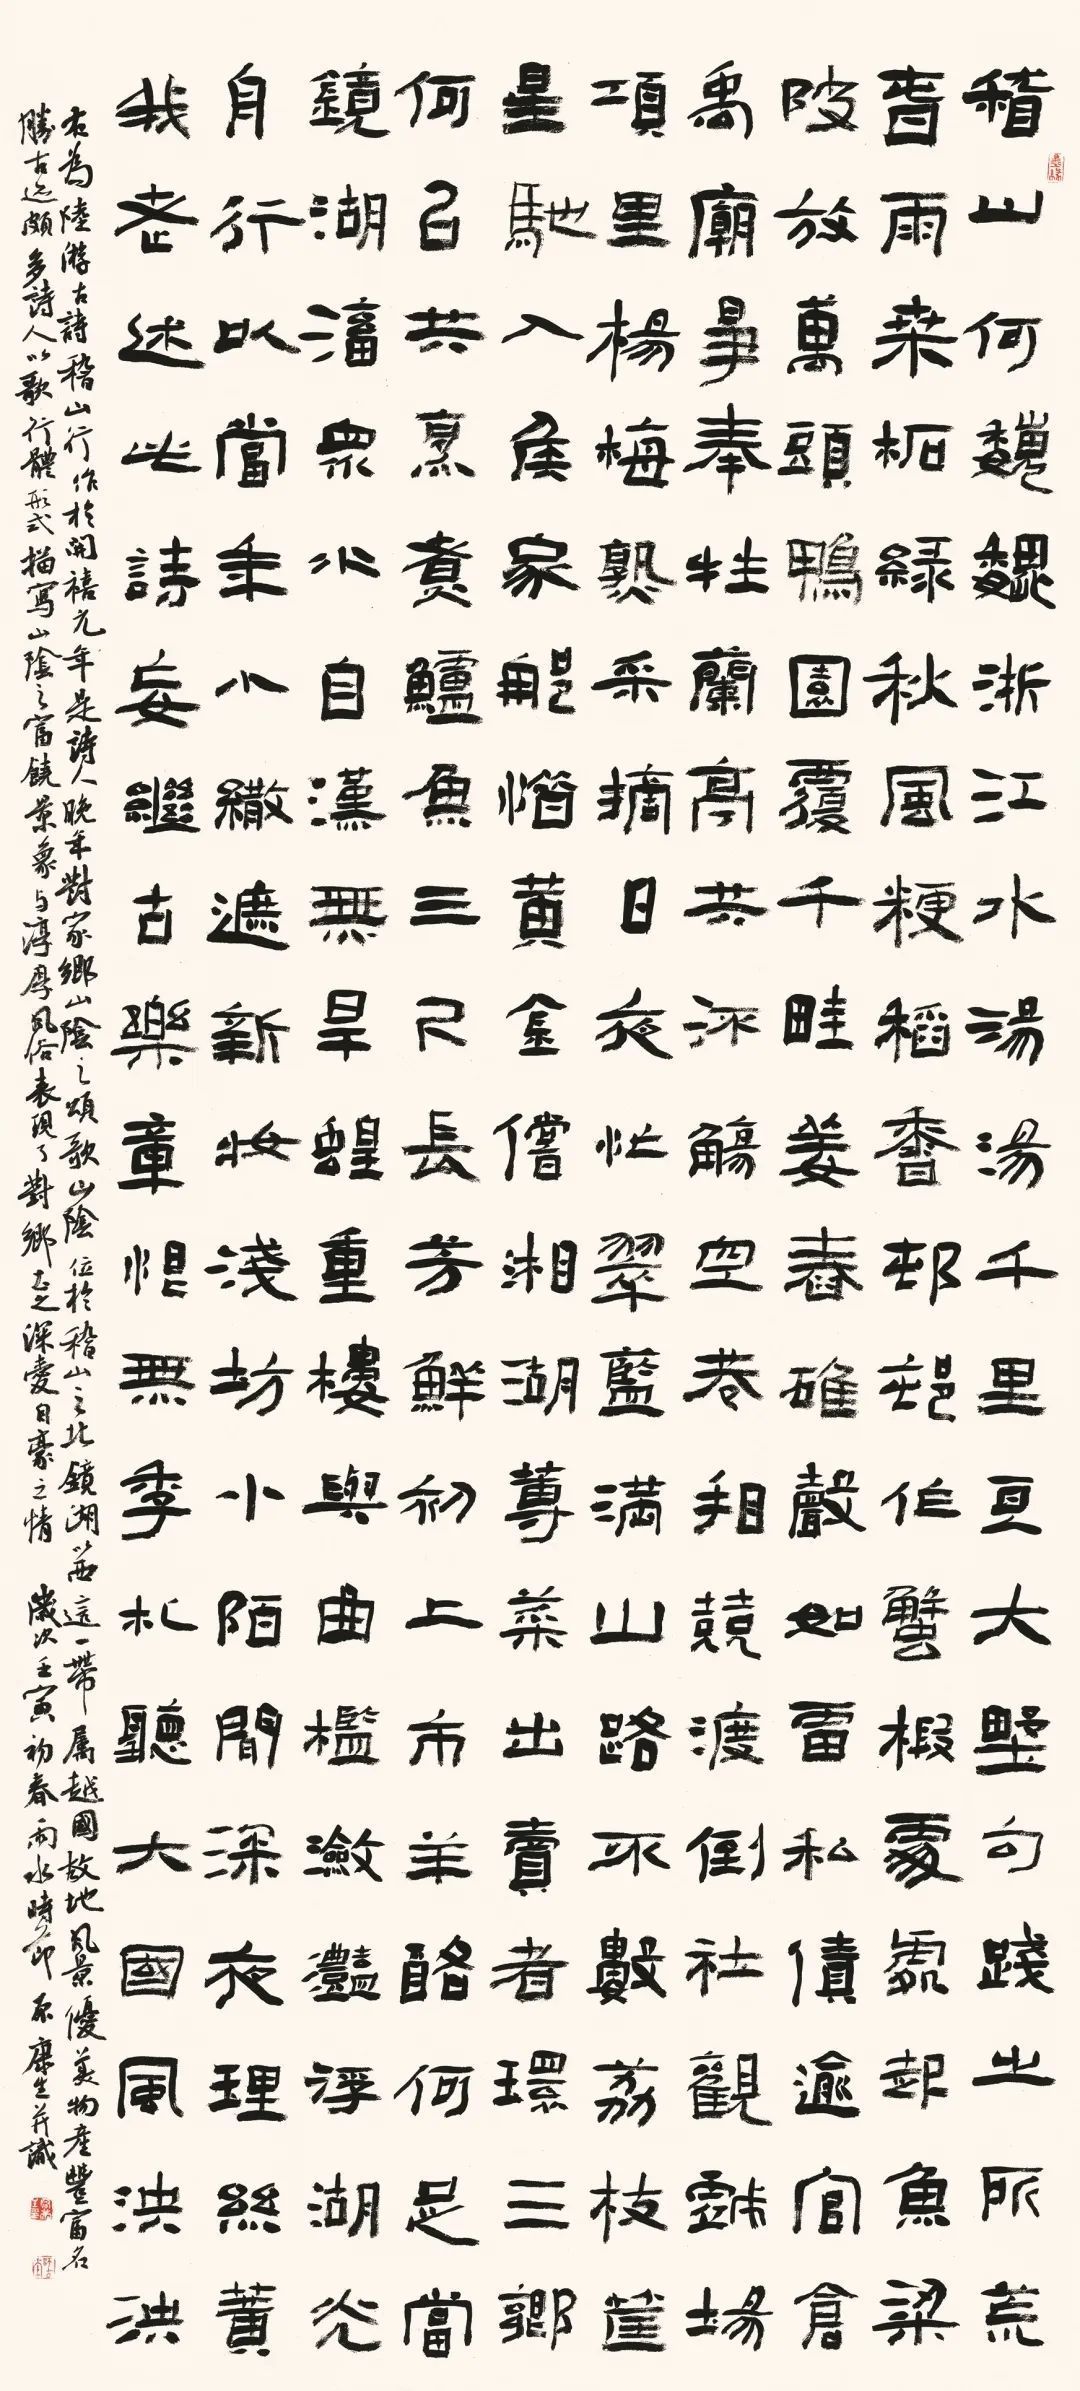 稽山何巍巍浙江水湯湯千里亘大墅句踐之所荒
春雨桑柘綠秋風粳稻香邨邨作蟹椵處處起魚梁
陂放萬頭鴨園覆千畦姜舂碓聲如雷私債逾官倉
禹廟爭奉牲蘭亭共流觴空巷看競渡倒社觀戲場
項里楊梅熟采摘日夜忙翠藍滿山路不數荔枝筐
星馳入侯家那惜黃金償湘湖蓴菜出賣者環三鄉
何㠯共烹煮鱸魚三尺長芳鮮初上市羊酪何足當
鏡湖瀦眾水自漢無旱蝗重樓與曲檻瀲灩浮湖光
舟行以當年小繖遮新妝淺坊小陌間深夜理絲簧
我老述此詩妄繼古樂章恨無季札聽大國風泱泱
右為陸游古詩稽山行作於開禧元年是詩人晚年對家鄉山陰之頌歌山陰位於稽山之北鏡湖以西這一帶屬越國故地風景優美物產豐富名
勝古迹頗多詩人以歌行體形式描寫山陰之富饒景象与淳厚風俗表現了對鄉土之深愛自豪之情 歲次壬寅初春雨水時節 康生并識